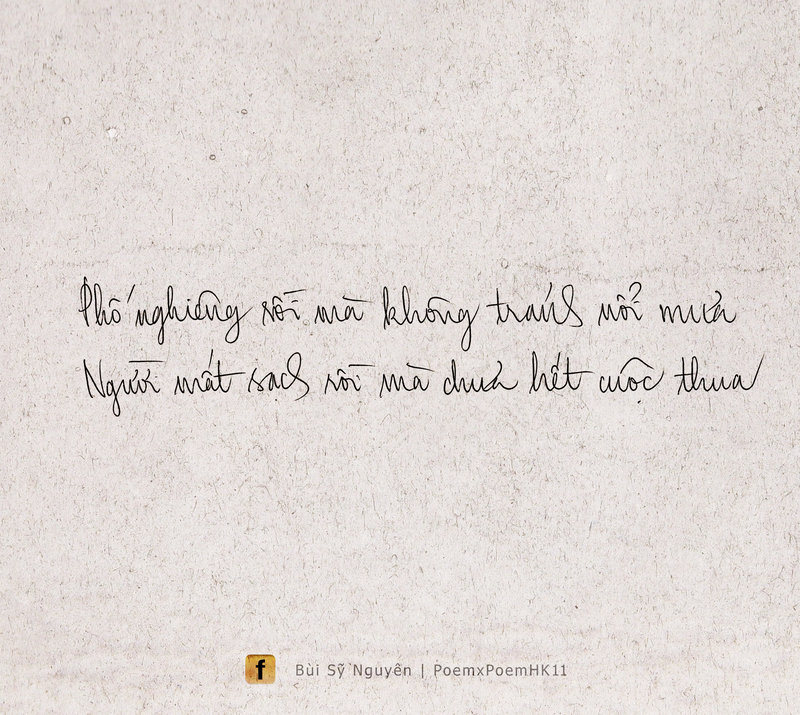 Phố nghiêng rồi mà không tránh nổi mưa
Người mất sạch rồi mà chưa hết cuộc thua
f Bùi Sỹ Nguyên | PoemxPoemHK11